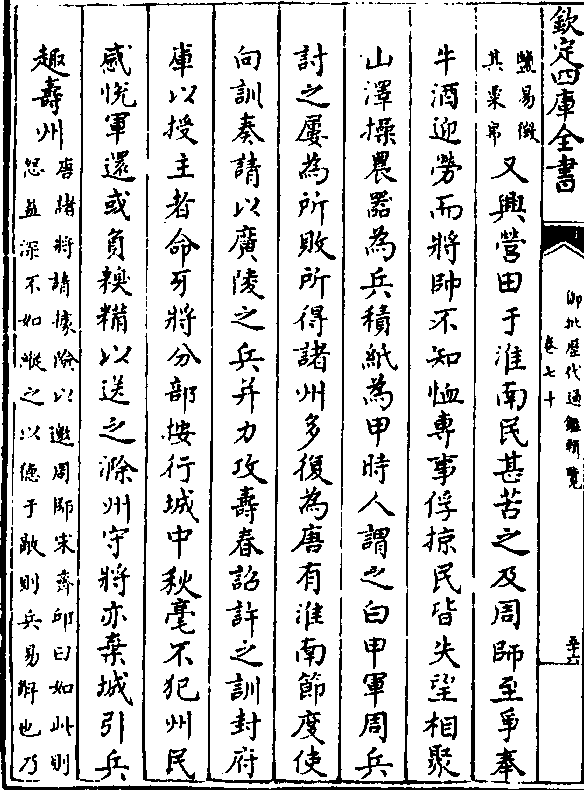 欽定四庫全書
御批歷代通鑑輯覽
卷七十
五十六
鹽易徵
其粟帛
又興營田于淮南民甚苦之及周師至爭奉
牛酒迎勞而將帥不知恤專事俘掠民皆失望相聚
山澤操農器為兵積紙為甲時人謂之白甲軍周兵
討之屢為所敗所得諸州多復為唐有淮南節度使
向訓奏請以廣陵之兵并力攻壽春詔許之訓封府
庫以授主者命牙將分部按行城中秋毫不犯州民
感悅軍還或負糗糒以送之滁州守將亦棄城引兵
趣壽州
唐諸將請據險以邀周師宋齊邱曰如此則
怨益深不如縱之以德于敵則兵易解也乃